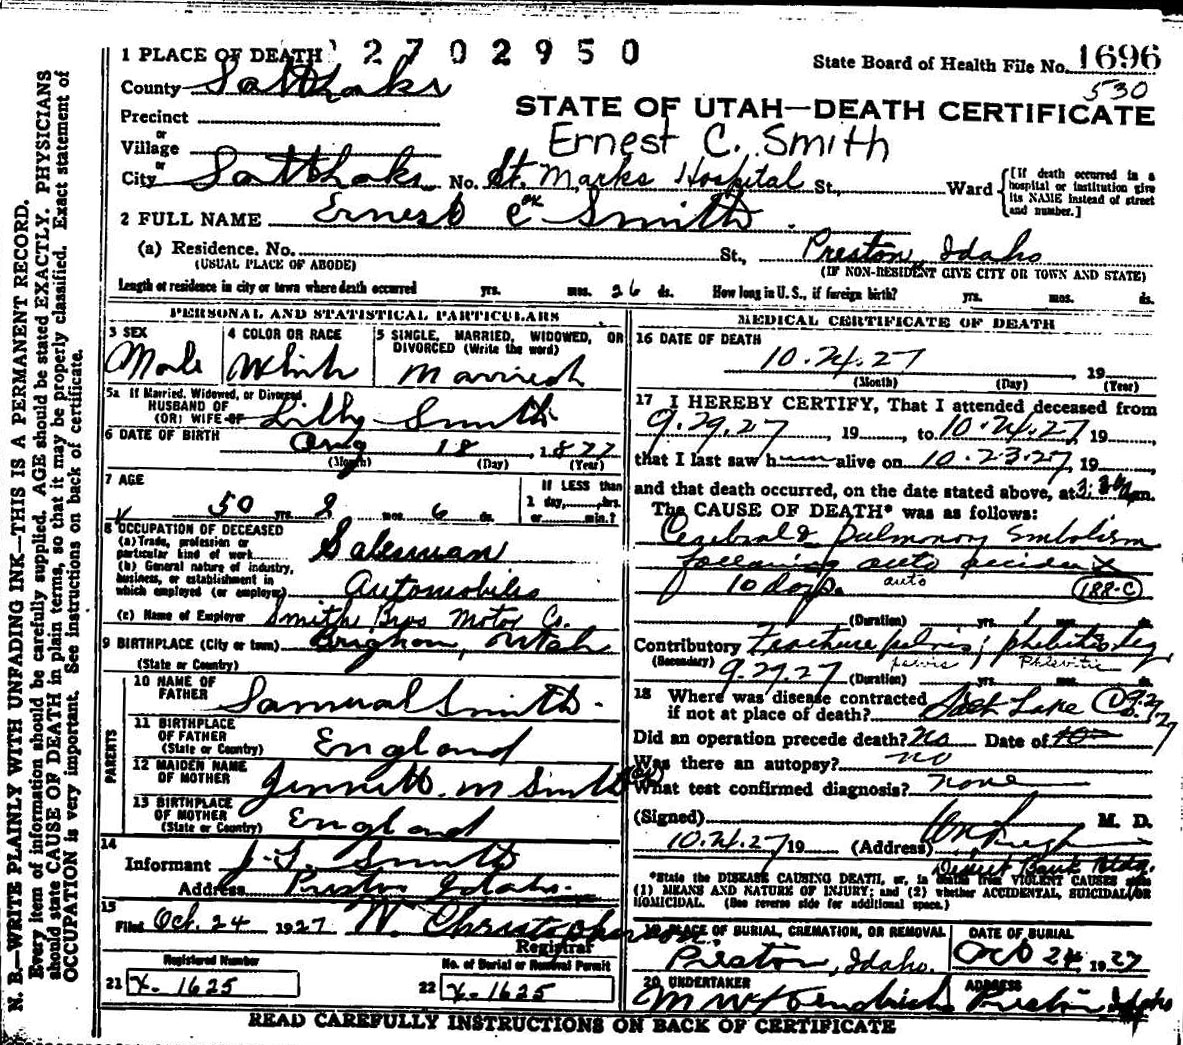 N. B.—WRITE PLAINLY WITH UNFADING INK—THIS IS A PERMANENT RECORD.
Every item of information should be carefully supplied. AGE should be stated EXACTLY. PHYSICIANS
should state CAUSE OF DEATH in plain terms, so that it may be properly classified. Exact statement of
OCCUPATION is very important. See instructions on back of certificate.
1 PLACE OF DEATH 2702950
State Board of Health File No. 1696
530
County Salt Lake
STATE OF UTAH—DEATH CERTIFICATE
Precinct
or
Village
Ernest C. Smith
or
City Salt Lake No. St. Marks Hospital St., Ward
[If death occurred in a hospital or institution give its NAME instead of street and number.]
2 FULL NAME Ernest C Smith
(a) Residence. No. St., Preston, Idaho
(USUAL PLACE OF ABODE) (IF NON-RESIDENT GIVE CITY OR TOWN AND STATE)
Length of residence in city or town where death occurred yrs. mos. 26 ds. How long in U. S., if foreign birth? yrs. mos. ds.
PERSONAL AND STATISTICAL PARTICULARS
3 SEX
Male
4 COLOR OR RACE
White
5 SINGLE, MARRIED, WIDOWED, OR
DIVORCED (Write the word)
Married
5a If Married, Widowed, or Divorced
HUSBAND OF
(OR) WIFE OF Lilly Smith
6 DATE OF BIRTH Aug 18, 1877
(Month) (Day) (Year)
7 AGE
50 yrs. 2 mos. 6 ds.
If LESS than
1 day, hrs.
or min.?
8 OCCUPATION OF DECEASED
(a) Trade, profession or
particular kind of work Salesman
(b) General nature of industry,
business, or establishment in
which employed (or employer) Automobiles
(c) Name of Employer Smith Bros Motor Co.
9 BIRTHPLACE (City or town) Brigham, Utah
(State or Country)
PARENTS
10 NAME OF
FATHER Samuel Smith
11 BIRTHPLACE
OF FATHER
(State or Country) England
12 MAIDEN NAME
OF MOTHER Jennett M Smith
13 BIRTHPLACE
OF MOTHER
(State or Country) England
14
Informant Smith
Address Preston Idaho
15
Filed Oct. 24 1927 W. Christopherson
Registrar
Registered Number
21 X-1625
No. of Burial or Removal Permit
22 X-1625
MEDICAL CERTIFICATE OF DEATH
16 DATE OF DEATH
10-24-27 19
(Month) (Day) (Year)
17 I HEREBY CERTIFY, That I attended deceased from
9.29.27, 19, to 10.24.27, 19,
that I last saw h alive on 10.23.27, 19
and that death occurred, on the date stated above, at m.
The CAUSE OF DEATH* was as follows:
Cerebral & pulmonary Embolism
following auto accident
10 days. auto 188-C
(Duration) yrs. mos. ds.
Contributory Fracture pelvis; phlebitis leg
(Secondary) pelvis Phlebitis
9.29.27 (Duration) yrs. mos. ds.
18 Where was disease contracted
if not at place of death? Salt Lake Co.
Did an operation precede death? no Date of
Was there an autopsy? no
What test confirmed diagnosis? none
(Signed) M. D.
10.24.27 19 (Address) Deseret Bank Bldg.
*State the DISEASE CAUSING DEATH, or, in deaths from VIOLENT CAUSES state
(1) MEANS AND NATURE OF INJURY; and (2) whether ACCIDENTAL, SUICIDAL, OR
HOMICIDAL. (See reverse side for additional space.)
19 PLACE OF BURIAL, CREMATION, OR REMOVAL
Preston, Idaho.
DATE OF BURIAL
Oct 24, 1927
20 UNDERTAKER
ADDRESS
Preston Idaho
READ CAREFULLY INSTRUCTIONS ON BACK OF CERTIFICATE